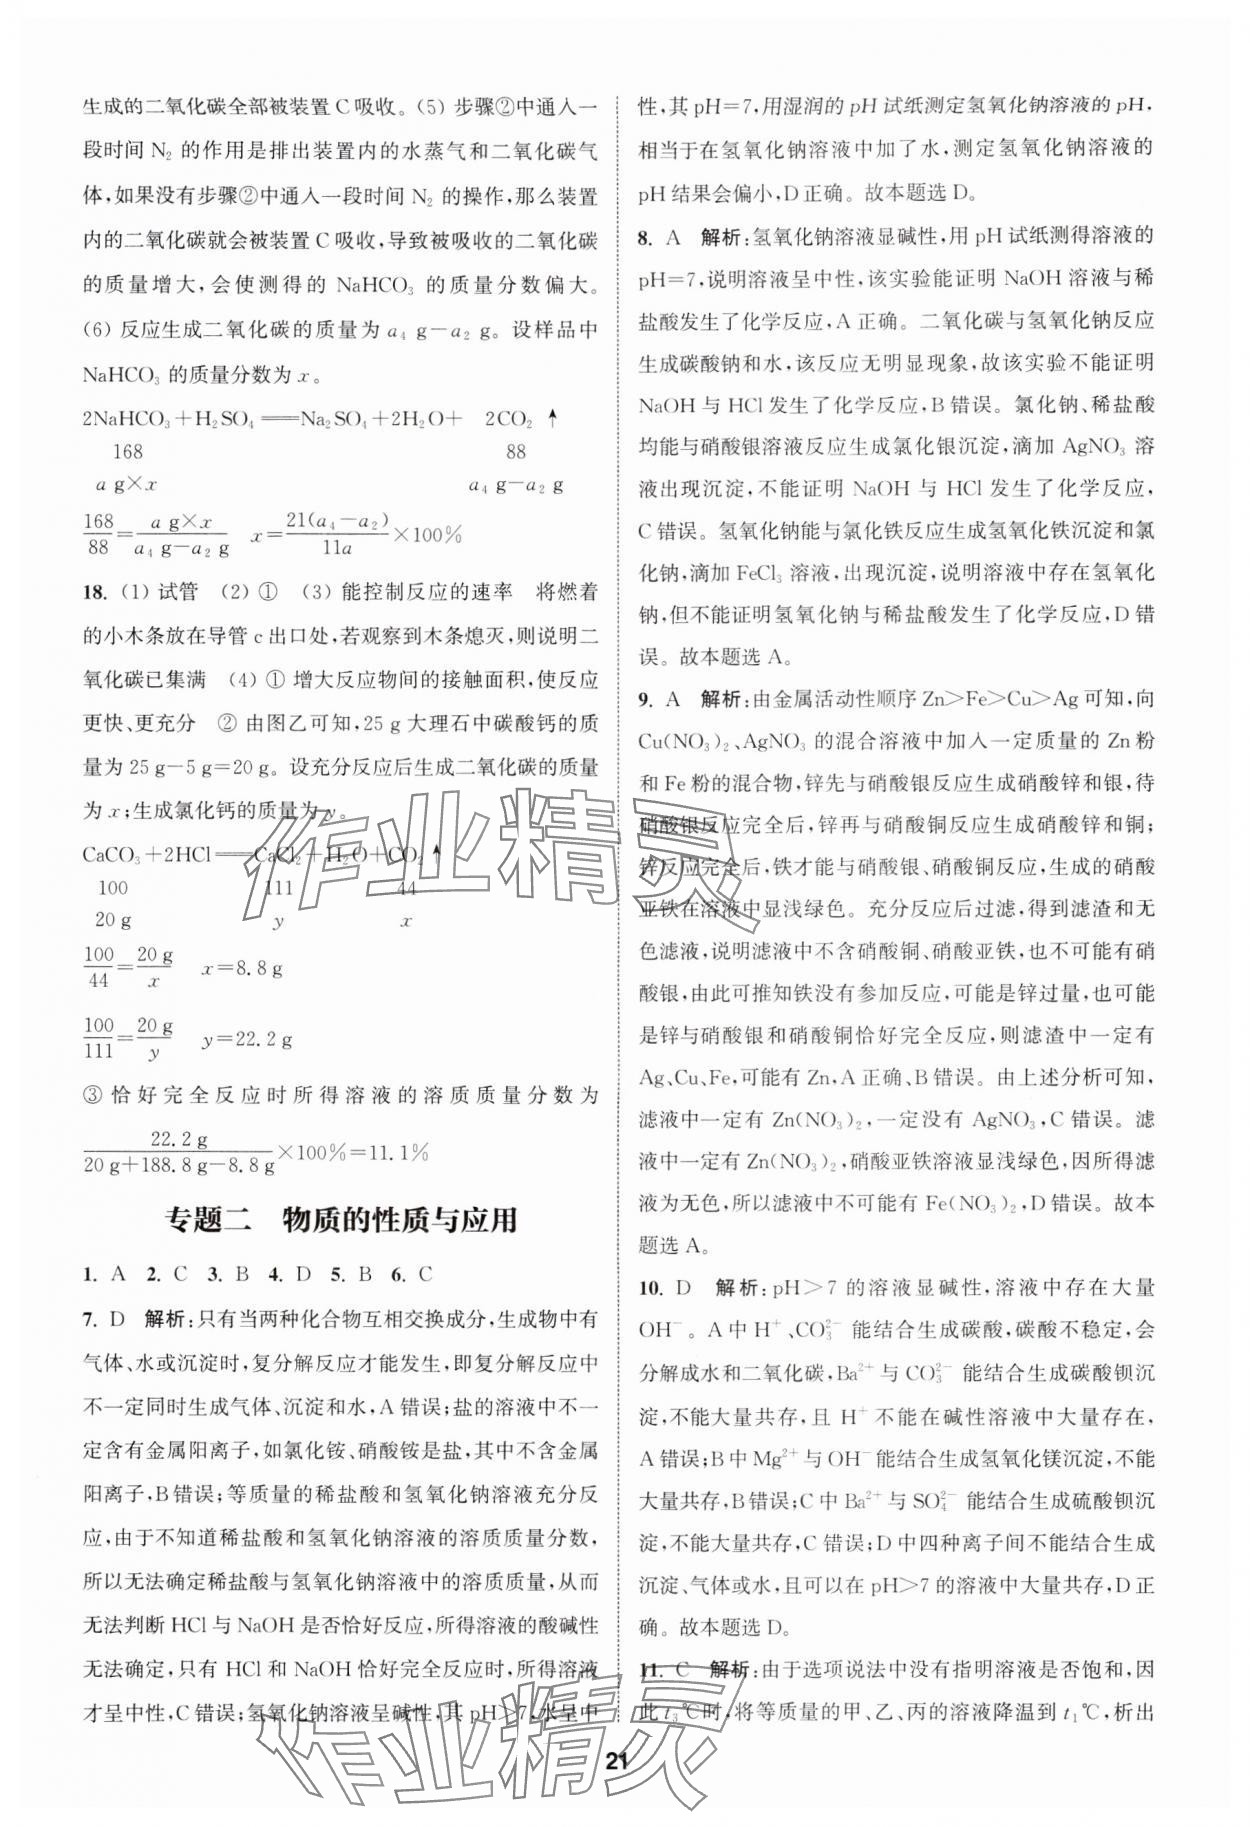 生成的二氧化碳全部被装置C吸收。(5) 步骤②中通入一
段时间 N₂ 的作用是排出装置内的水蒸气和二氧化碳气
体,如果没有步骤②中通入一段时间 N₂ 的操作,那么装置
内的二氧化碳就会被装置C吸收,导致被吸收的二氧化碳
的质量增大,会使测得的 NaHCO₃ 的质量分数偏大。
(6) 反应生成二氧化碳的质量为 a₄ g－a₂ g。设样品中
NaHCO₃ 的质量分数为 x。
2NaHCO₃＋H₂SO₄══Na₂SO₄＋2H₂O＋ 2CO₂ ↑
168 88
a g×x a₄ g－a₂ g
168/88＝(a g×x)/(a₄ g－a₂ g) x＝21(a₄－a₂)/11a×100%
18. (1) 试管 (2) ① (3) 能控制反应的速率 将燃着
的小木条放在导管 c 出口处,若观察到木条熄灭,则说明二
氧化碳已集满 (4) ① 增大反应物间的接触面积,使反应
更快、更充分 ② 由图乙可知,25 g 大理石中碳酸钙的质
量为 25 g－5 g＝20 g。设充分反应后生成二氧化碳的质量
为 x;生成氯化钙的质量为 y。
CaCO₃＋2HCl══CaCl₂＋H₂O＋CO₂ ↑
100 111 44
20 g y x
100/44＝20 g/x x＝8.8 g
100/111＝20 g/y y＝22.2 g
③ 恰好完全反应时所得溶液的溶质质量分数为
22.2 g/(20 g＋188.8 g－8.8 g)×100%＝11.1%
专题二 物质的性质与应用
1. A 2. C 3. B 4. D 5. B 6. C
7. D 解析:只有当两种化合物互相交换成分,生成物中有
气体、水或沉淀时,复分解反应才能发生,即复分解反应中
不一定同时生成气体、沉淀和水,A 错误;盐的溶液中不一
定含有金属阳离子,如氯化铵、硝酸铵是盐,其中不含金属
阳离子,B 错误;等质量的稀盐酸和氢氧化钠溶液充分反
应,由于不知道稀盐酸和氢氧化钠溶液的溶质质量分数,
所以无法确定稀盐酸与氢氧化钠溶液中的溶质质量,从而
无法判断 HCl 与 NaOH 是否恰好反应,所得溶液的酸碱性
无法确定,只有 HCl 和 NaOH 恰好完全反应时,所得溶液
才呈中性,C 错误;氢氧化钠溶液呈碱性,其 pH＞7,水呈中
性,其 pH＝7,用湿润的 pH 试纸测定氢氧化钠溶液的 pH,
相当于在氢氧化钠溶液中加了水,测定氢氧化钠溶液的
pH 结果会偏小,D 正确。故本题选 D。
8. A 解析:氢氧化钠溶液显碱性,用 pH 试纸测得溶液的
pH＝7,说明溶液呈中性,该实验能证明 NaOH 溶液与稀
盐酸发生了化学反应,A 正确。二氧化碳与氢氧化钠反应
生成碳酸钠和水,该反应无明显现象,故该实验不能证明
NaOH 与 HCl 发生了化学反应,B 错误。氯化钠、稀盐酸
均能与硝酸银溶液反应生成氯化银沉淀,滴加 AgNO₃ 溶
液出现沉淀,不能证明 NaOH 与 HCl 发生了化学反应,
C 错误。氢氧化钠能与氯化铁反应生成氢氧化铁沉淀和氯
化钠,滴加 FeCl₃ 溶液,出现沉淀,说明溶液中存在氢氧化
钠,但不能证明氢氧化钠与稀盐酸发生了化学反应,D 错
误。故本题选 A。
9. A 解析:由金属活动性顺序 Zn＞Fe＞Cu＞Ag 可知,向
Cu(NO₃)₂、AgNO₃ 的混合溶液中加入一定质量的 Zn 粉
和 Fe 粉的混合物,锌先与硝酸银反应生成硝酸锌和银,待
硝酸银反应完全后,锌再与硝酸铜反应生成硝酸锌和铜;
锌反应完全后,铁才能与硝酸银、硝酸铜反应,生成的硝酸
亚铁在溶液中显浅绿色。充分反应后过滤,得到滤渣和无
色滤液,说明滤液中不含硝酸铜、硝酸亚铁,也不可能有硝
酸银,由此可推知铁没有参加反应,可能是锌过量,也可能
是锌与硝酸银和硝酸铜恰好完全反应,则滤渣中一定有
Ag、Cu、Fe,可能有 Zn,A 正确、B 错误。由上述分析可知,
滤液中一定有 Zn(NO₃)₂,一定没有 AgNO₃,C 错误。滤
液中一定有 Zn(NO₃)₂,硝酸亚铁溶液显浅绿色,因所得滤
液为无色,所以滤液中不可能有 Fe(NO₃)₂,D 错误。故本
题选 A。
10. D 解析:pH＞7 的溶液显碱性,溶液中存在大量
OH⁻。A 中 H⁺、CO₃²⁻ 能结合生成碳酸,碳酸不稳定,会
分解成水和二氧化碳,Ba²⁺ 与 CO₃²⁻ 能结合生成碳酸钡沉
淀,不能大量共存,且 H⁺ 不能在碱性溶液中大量存在,
A 错误;B 中 Mg²⁺ 与 OH⁻ 能结合生成氢氧化镁沉淀,不能
大量共存,B 错误;C 中 Ba²⁺ 与 SO₄²⁻ 能结合生成硫酸钡沉
淀,不能大量共存,C 错误;D 中四种离子间不能结合生成
沉淀、气体或水,且可以在 pH＞7 的溶液中大量共存,D 正
确。故本题选 D。
11. C 解析:由于选项说法中没有指明溶液是否饱和,因
此 t₃ ℃时,将等质量的甲、乙、丙的溶液降温到 t₁ ℃,析出
21
作业精灵
作业精灵